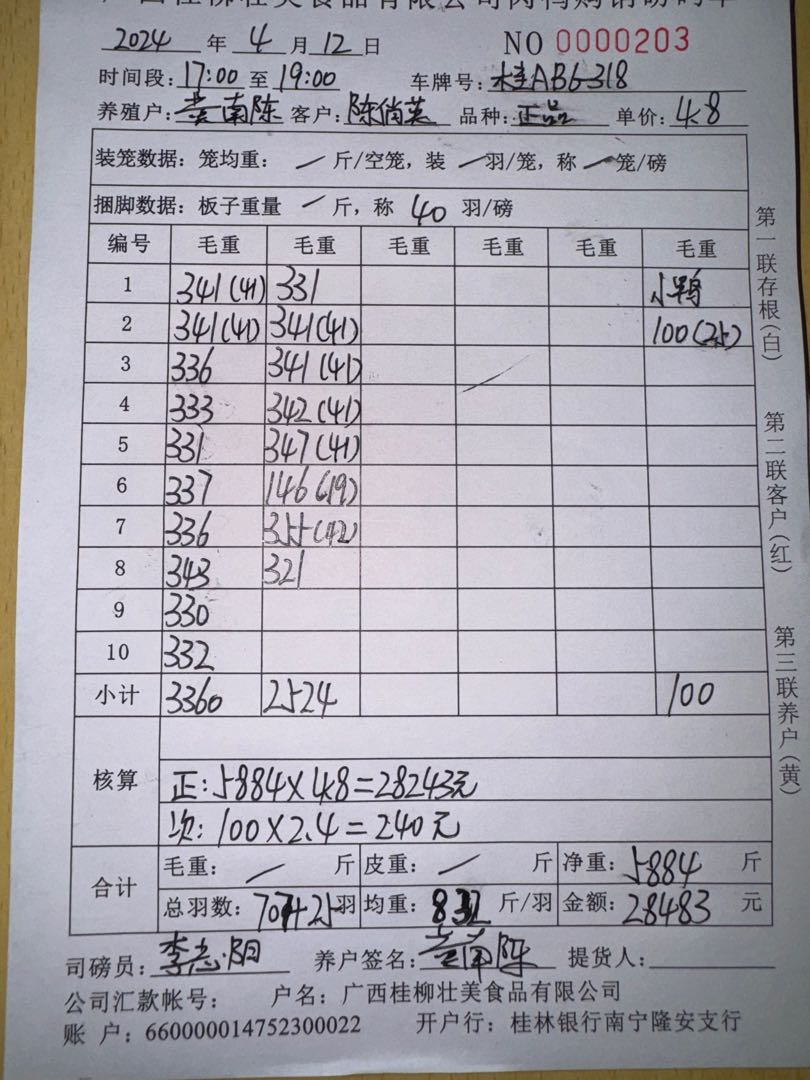 广西桂柳壮美食品有限公司肉鸭购销磅码单
2024 年 4 月 12 日 NO 0000203
时间段: 17:00 至 19:00 车牌号: 桂AB6318
养殖户: 南陈 客户: 陈俏英 品种: 正品 单价: 4.8
装笼数据: 笼均重: / 斤/空笼, 装 / 羽/笼, 称 / 笼/磅
捆脚数据: 板子重量 / 斤, 称 40 羽/磅
编号 毛重 毛重 毛重 毛重 毛重 毛重
1 341(41) 331 小鸭
2 341(41) 341(41) 100(25)
3 336 341(41)
4 333 342(41)
5 331 347(41)
6 337 146(19)
7 336 355(42)
8 343 321
9 330
10 332
小计 3360 2524 100
核算
正: 5884×4.8=28243元
次: 100×2.4=240元
合计
毛重: / 斤 皮重: / 斤 净重: 5884 斤
总羽数: 707+25羽 均重: 8.32 斤/羽 金额: 28483 元
司磅员: 李志阳 养户签名: 南陈 提货人:
公司汇款帐号: 户名: 广西桂柳壮美食品有限公司
账 户: 660000014752300022 开户行: 桂林银行南宁隆安支行
第一联存根(白)
第二联客户(红)
第三联养户(黄)